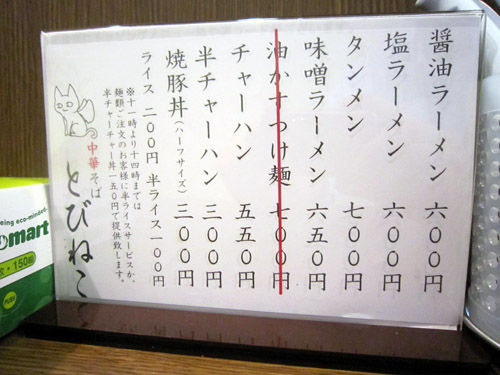 醤油ラーメン 六〇〇円
塩ラーメン 六〇〇円
タンメン 七〇〇円
味噌ラーメン 六五〇円
油かすつけ麺 七〇〇円
チャーハン 五五〇円
半チャーハン 三〇〇円
焼豚丼(ハーフサイズ) 三〇〇円
ライス 二〇〇円 半ライス一〇〇円
※十一時より十四時までは
麺類ご注文のお客様に半ライスサービスか、
半チャーチャー丼一五〇円で提供致します。
中華そば
とびねこ
being eco-minded
mart
・150組
PUSH